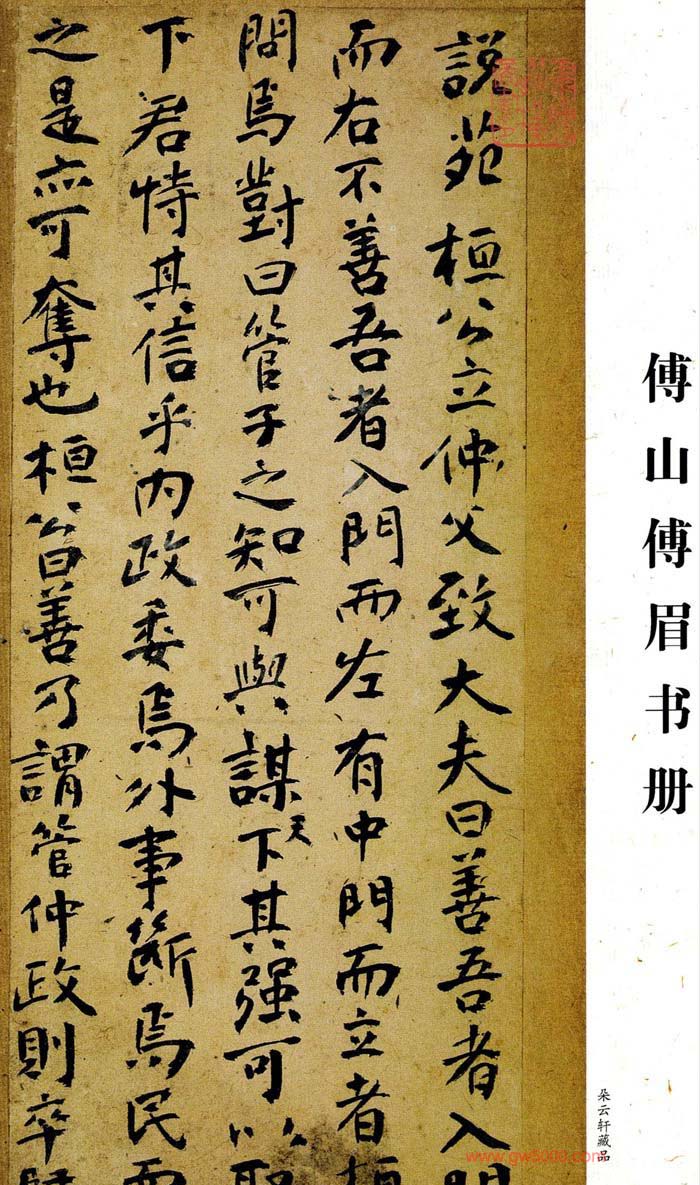 傅山傅眉书册
朵云轩藏品
说苑 桓公立仲父致大夫曰善吾者入門
而右不善吾者入門而左有中門而立者桓
問焉對曰管子之知可與謀天下其强可以取
下君恃其信乎内政委焉外事斷焉民而
之是亦可奪也桓公曰善乃謂管仲政則卒歸
www.gw5000.com